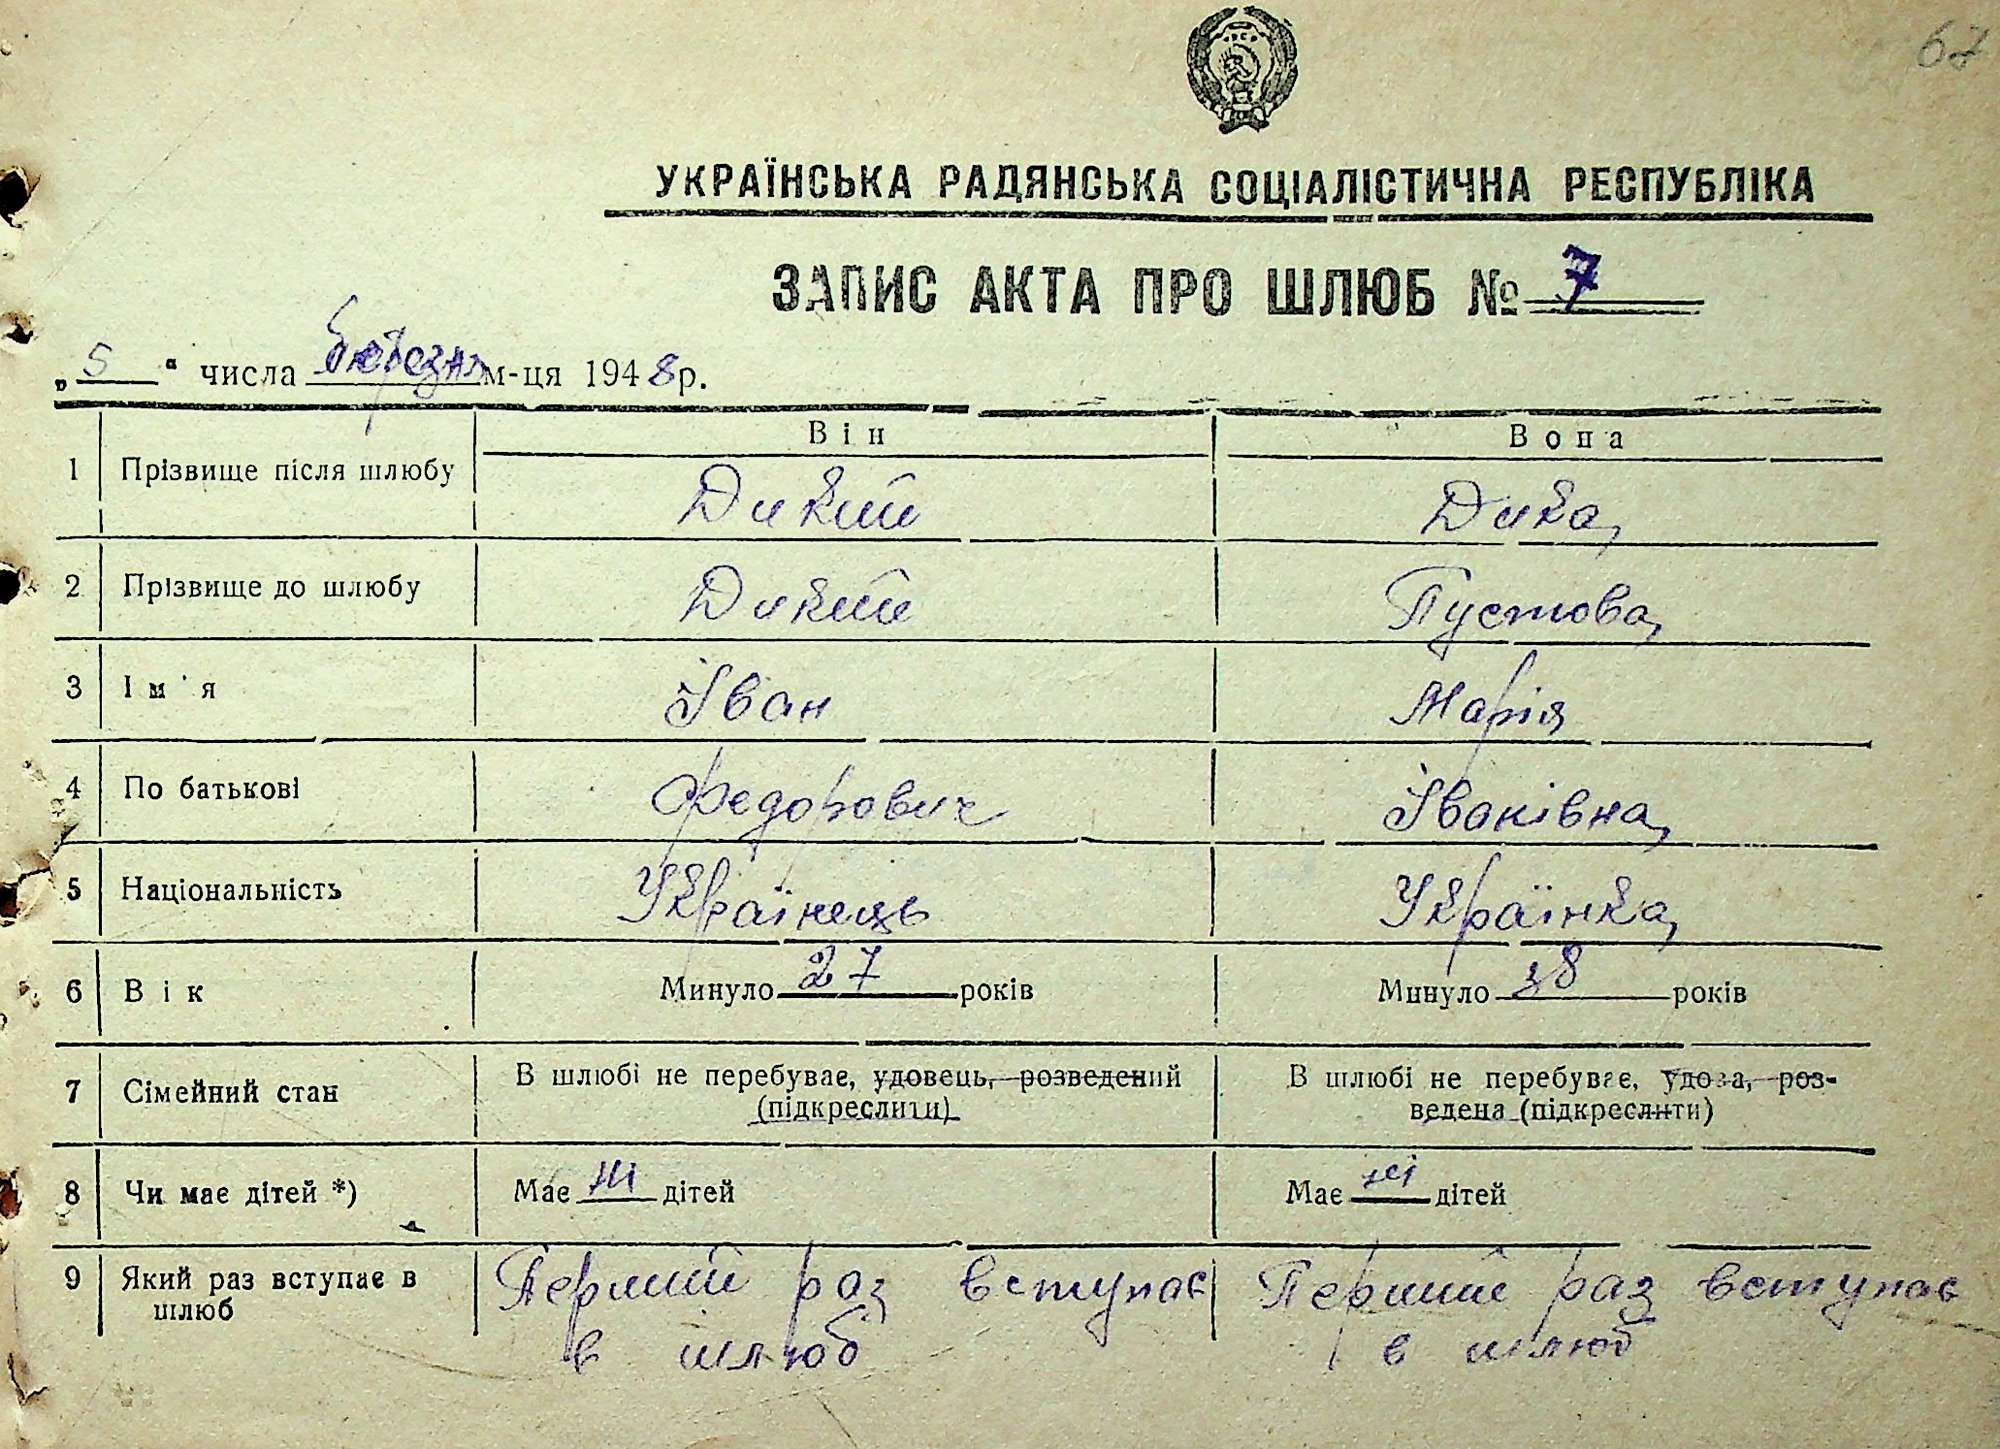 67
УКРАЇНСЬКА РАДЯНСЬКА СОЦІАЛІСТИЧНА РЕСПУБЛІКА
ЗАПИС АКТА ПРО ШЛЮБ № 7
„ 5 “ числа березня м-ця 1948 р.
Він Вона
1 Прізвище після шлюбу Дикий Дика
2 Прізвище до шлюбу Дикий Пустова
3 Ім'я Іван Марія
4 По батькові Федорович Іванівна
5 Національність Українець Українка
6 Вік Минуло 27 років Минуло 28 років
7 Сімейний стан В шлюбі не перебуває, удовець, розведений В шлюбі не перебуває, удова, роз-
(підкреслити) ведена (підкреслити)
8 Чи має дітей *) Має ні дітей Має ні дітей
9 Який раз вступає в Перший раз вступає Перший раз вступає
шлюб в шлюб в шлюб